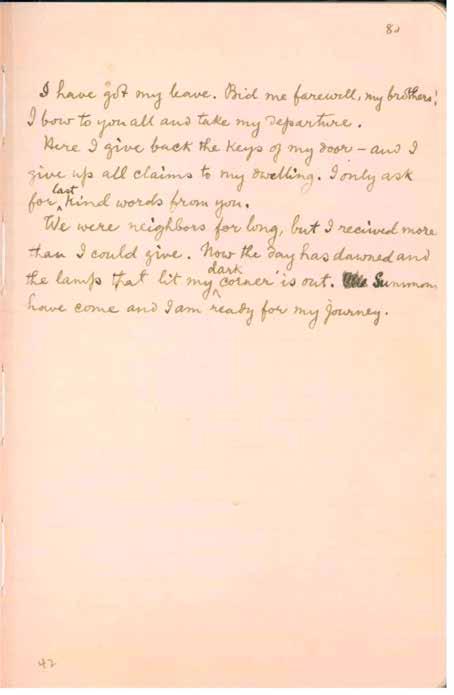 80
I have got my leave. Bid me farewell, my brothers!
I bow to you all and take my departure.
Here I give back the keys of my door – and I
give up all claims to my dwelling. I only ask
for last kind words from you.
We were neighbors for long, but I recived more
than I could give. Now the day has dawned and
the lamp that lit my dark corner is out. Summon
have come and I am ready for my journey.
42